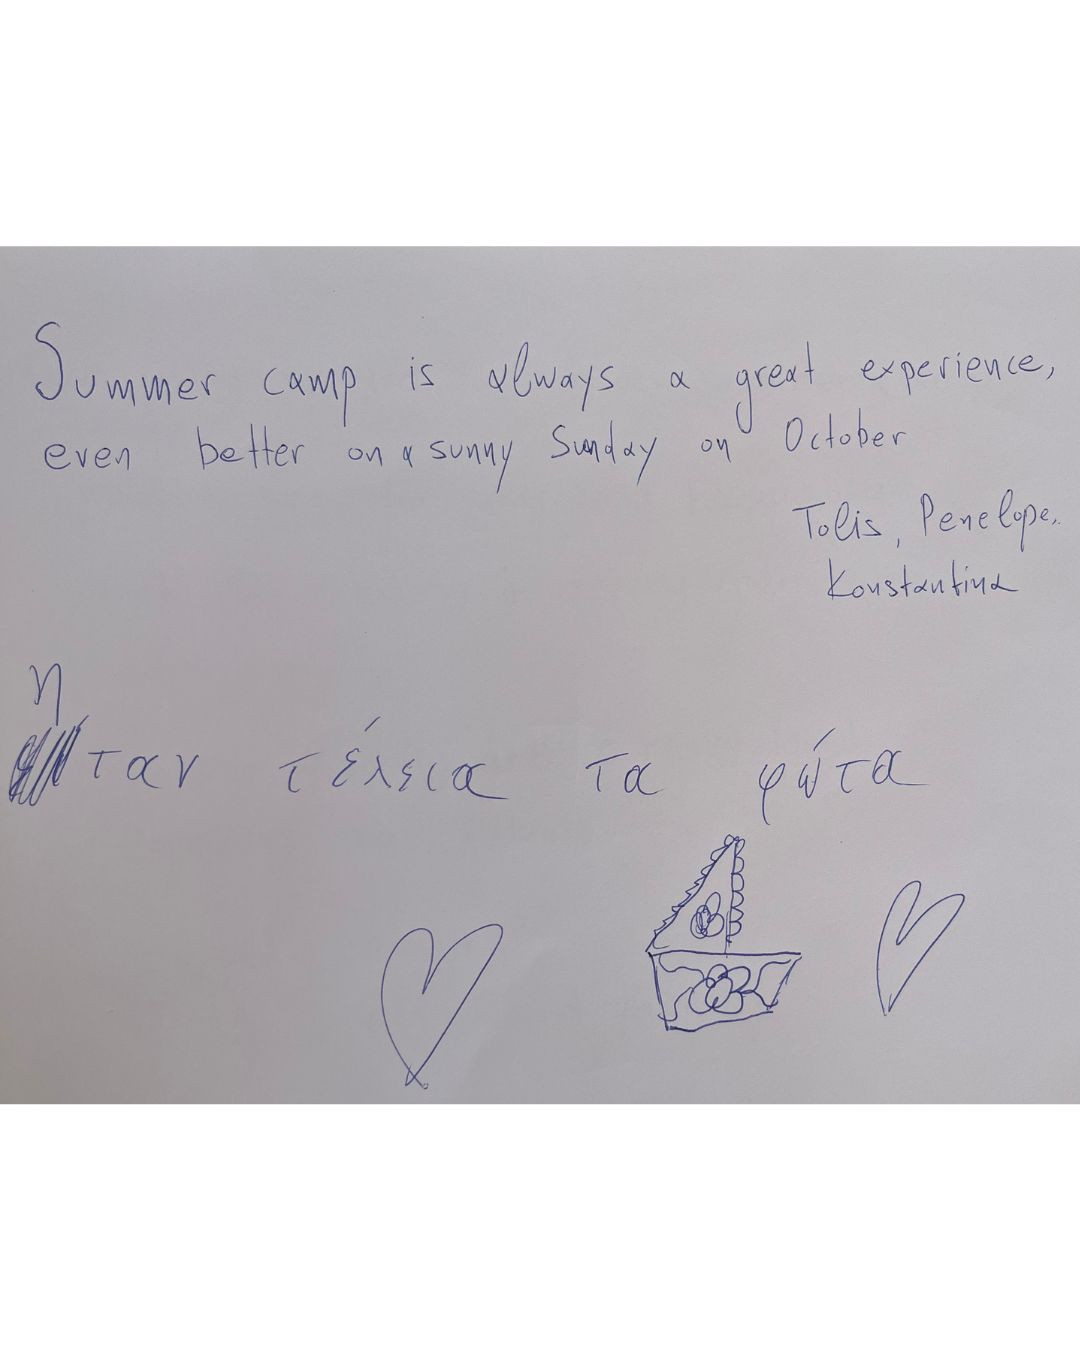 Summer camp is always a great experience,
even better on a sunny Sunday on October
Tolis, Penelope,
Konstantina
ηταν τέλεια τα φώτα